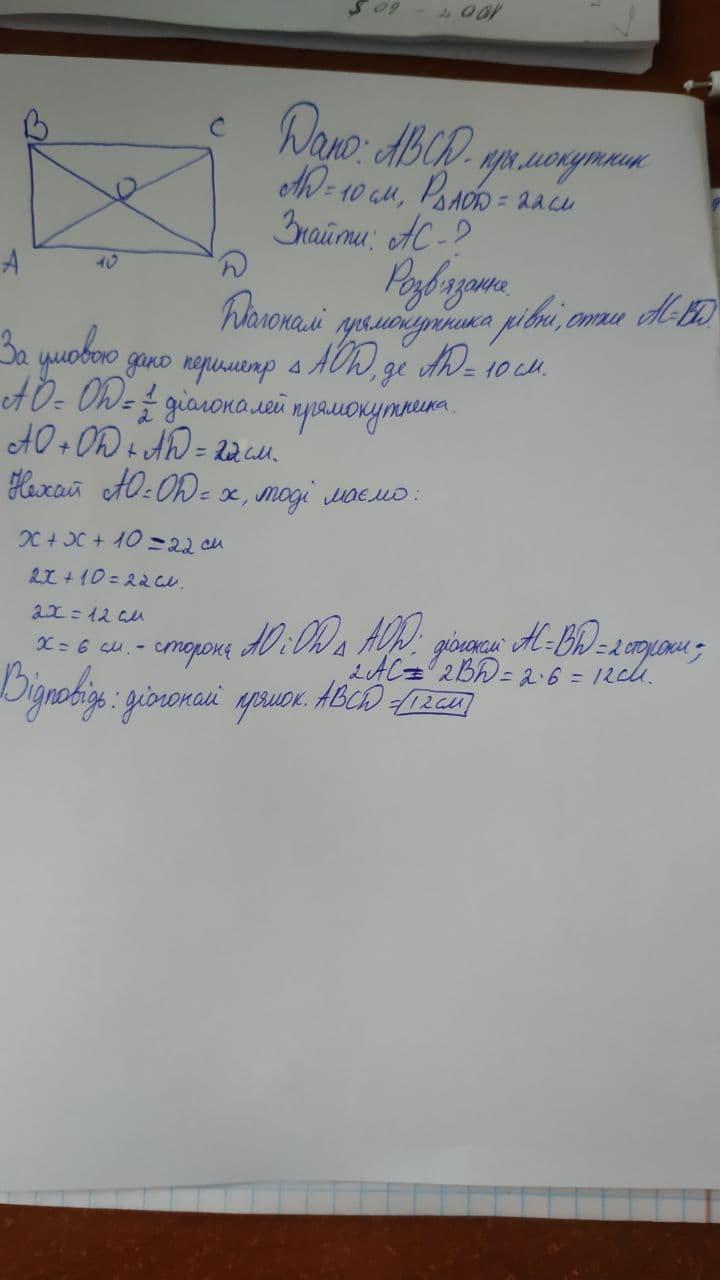 B
C
O
A
10
D
Дано: ABCD - прямокутник
AD = 10 см, P△AOD = 22 см
Знайти: AC - ?
Розв'язання.
Діагоналі прямокутника рівні, отже AC=BD.
За умовою дано периметр △ AOD, де AD = 10 см.
AO = OD = 1/2 діагоналей прямокутника.
AO + OD + AD = 22 см.
Нехай AO = OD = x, тоді маємо:
x + x + 10 = 22 см
2x + 10 = 22 см.
2x = 12 см
x = 6 см. - сторона AO і OD △ AOD; діагоналі AC=BD = 2 сторони;
2AC = 2BD = 2·6 = 12 см.
Відповідь: діагоналі прямок. ABCD = 12 см